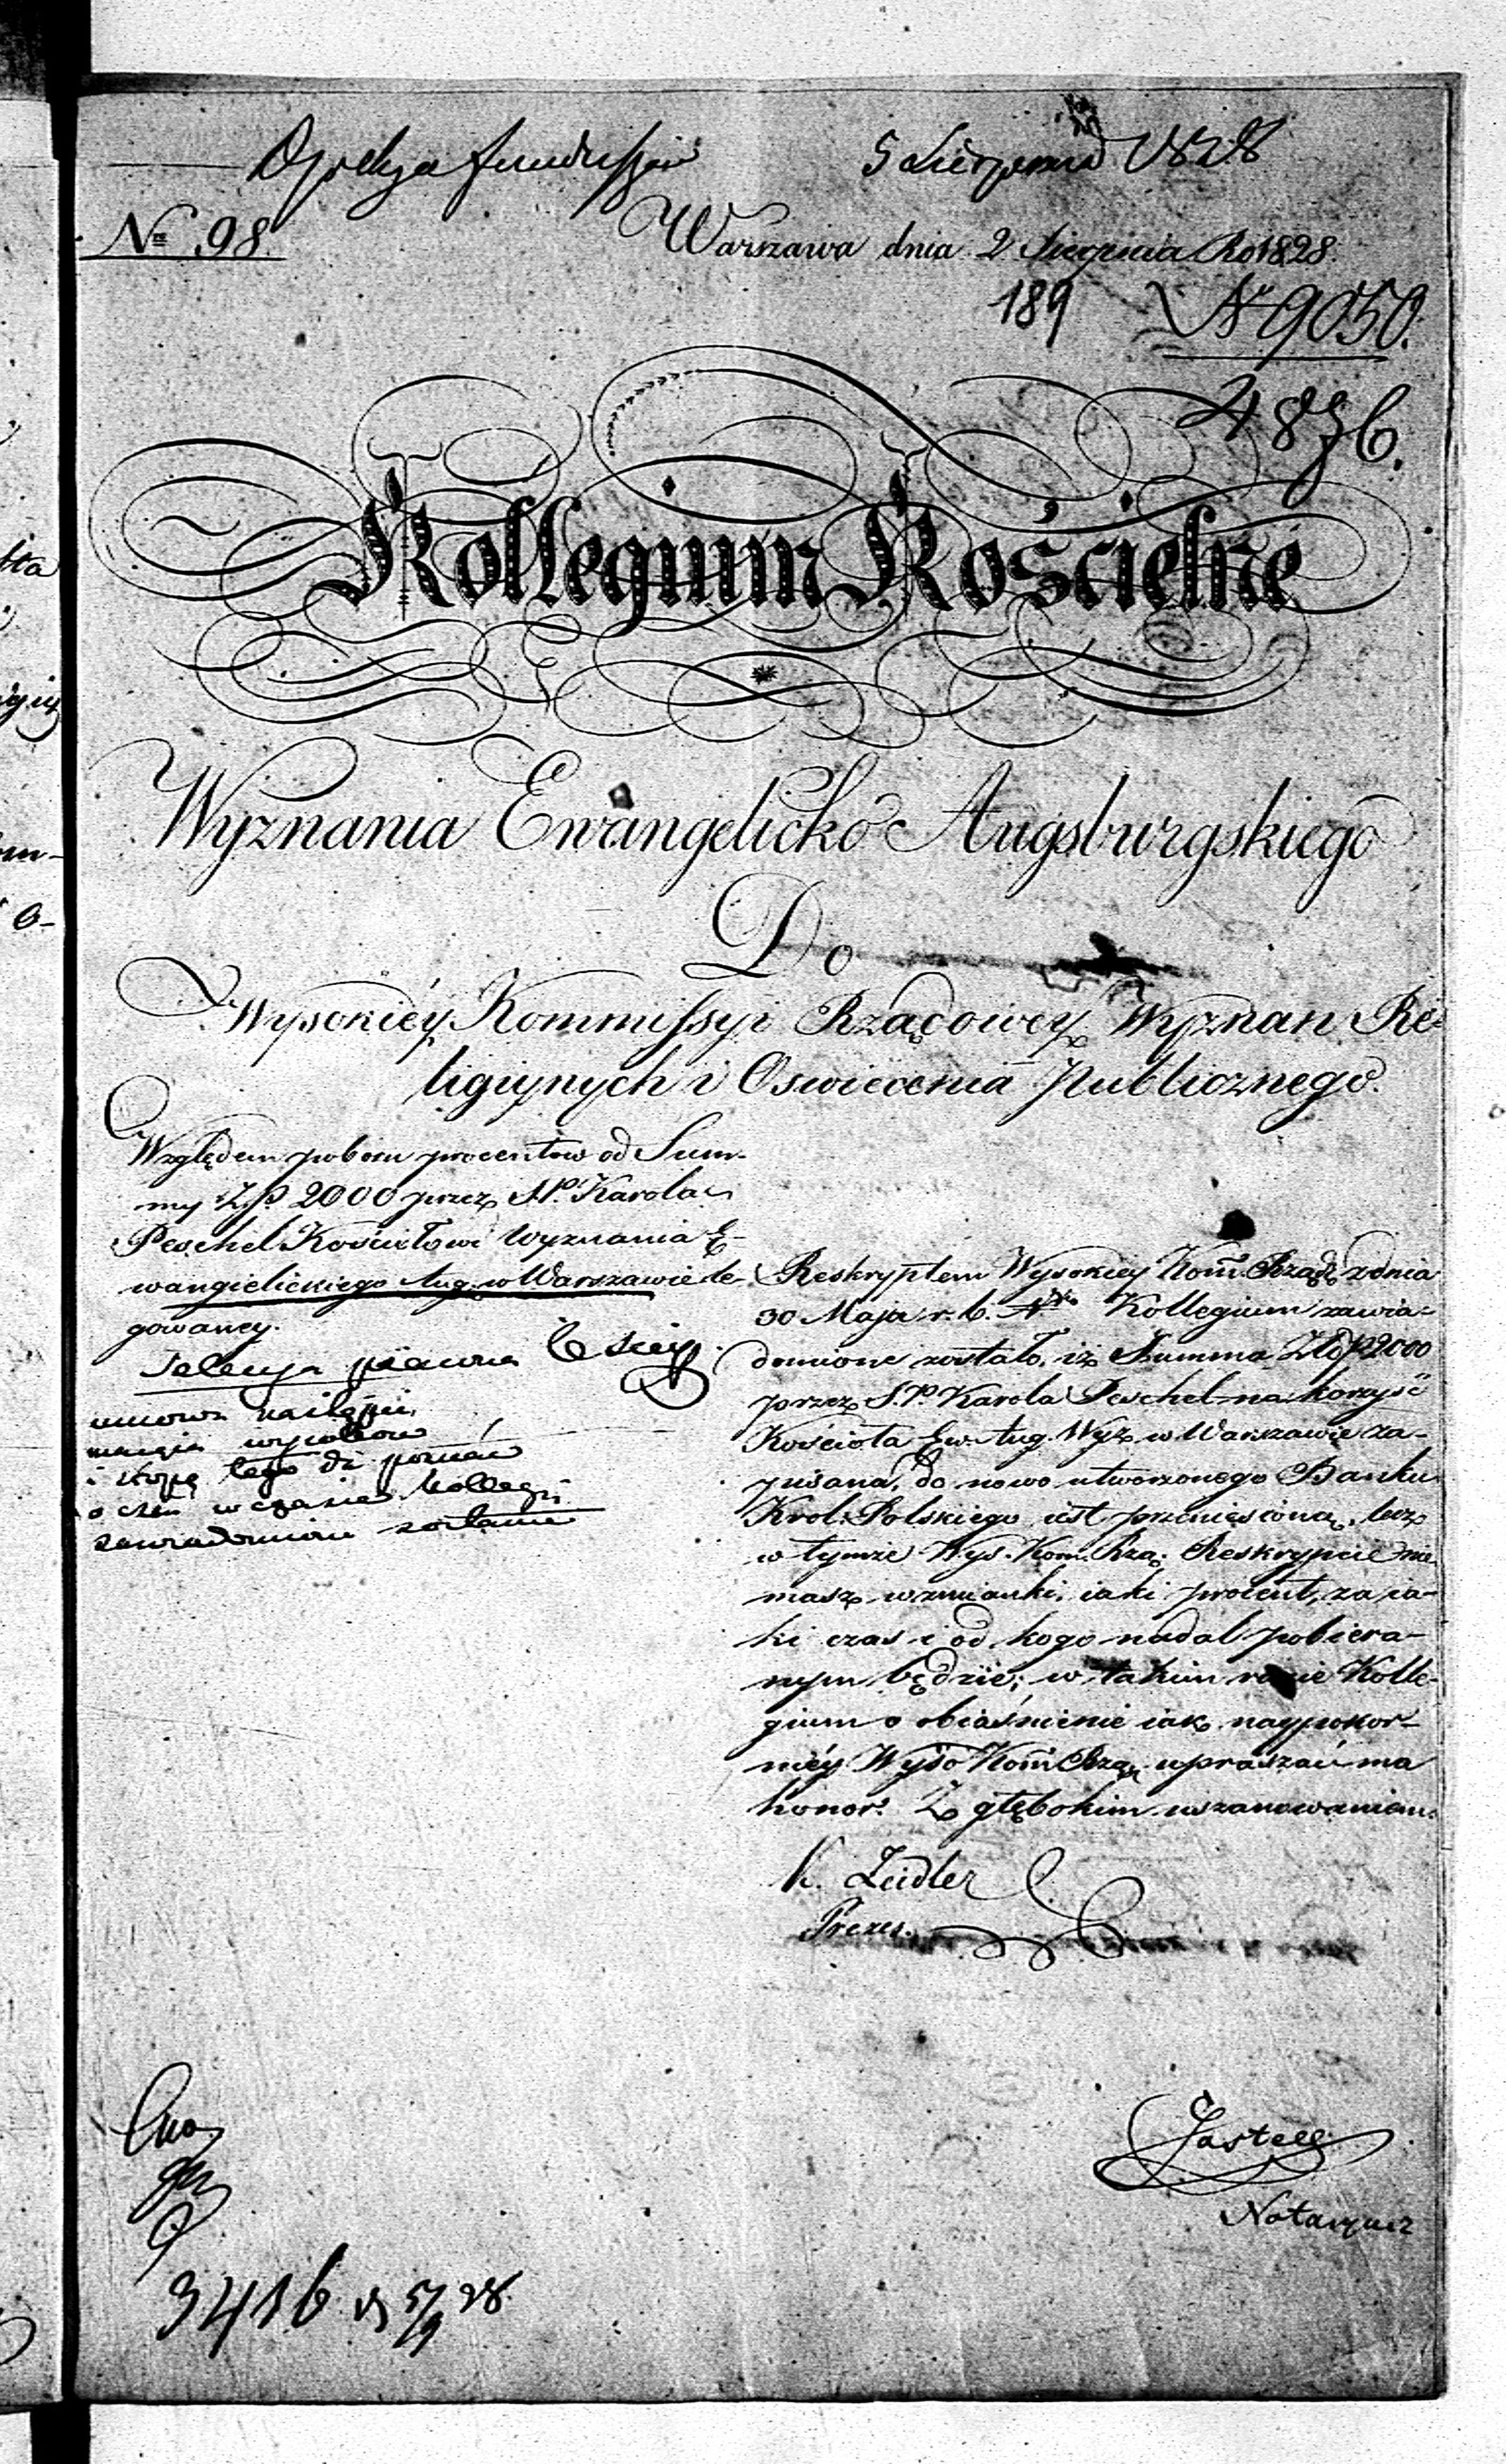 5 Sierpnia 1828
No 98.
Warszawa dnia 2 Sierpnia Ro 1828.
189 N 9050.
4836.
Kollegium Kościelne
Wyznania Ewangelicko Augsburgskiego
Do
Wysokiéy Kommissyi Rządowey Wyznan Re-
ligiynych i Oswiecenia Publicznego.
Względem poboru procentów od Sum-
my Z.P. 2000 przez S.P. Karola
Peschel Kościołowi Wyznania E-
wangielickiego Aug. w Warszawie le-
gowaney.
umowa nastąpi,
i stopę tego
o czem w czasie Kollegij
zawiadomione zostanie
Reskryptem Wysokiey Kom Rząd z dnia
30 Maja r. b. Kollegium zawia-
domione zostało, iż Summa Złp 2000
przez S.P. Karola Peschel na korzyść
Kościoła Ew. Aug. Wyz. w Warszawie za-
pisana, do nowo utworzonego Banku
Krol. Polskiego jest przeniesioną, lecz
w tymże Wys. Kom. Rzą. Reskrypcie nie
masz wzmianki, iaki procent, za ia-
ki czas i od kogo nadal pobiera-
nym będzie; w takim razie Kolle-
gium o obiaśnienie iak naypokor-
niéy Wyso Kom Rzą upraszać ma
honor. Z głębokim uszanowaniem.
K. Zeidler
Prezes.
Notaryusz
3416 5/9 28.